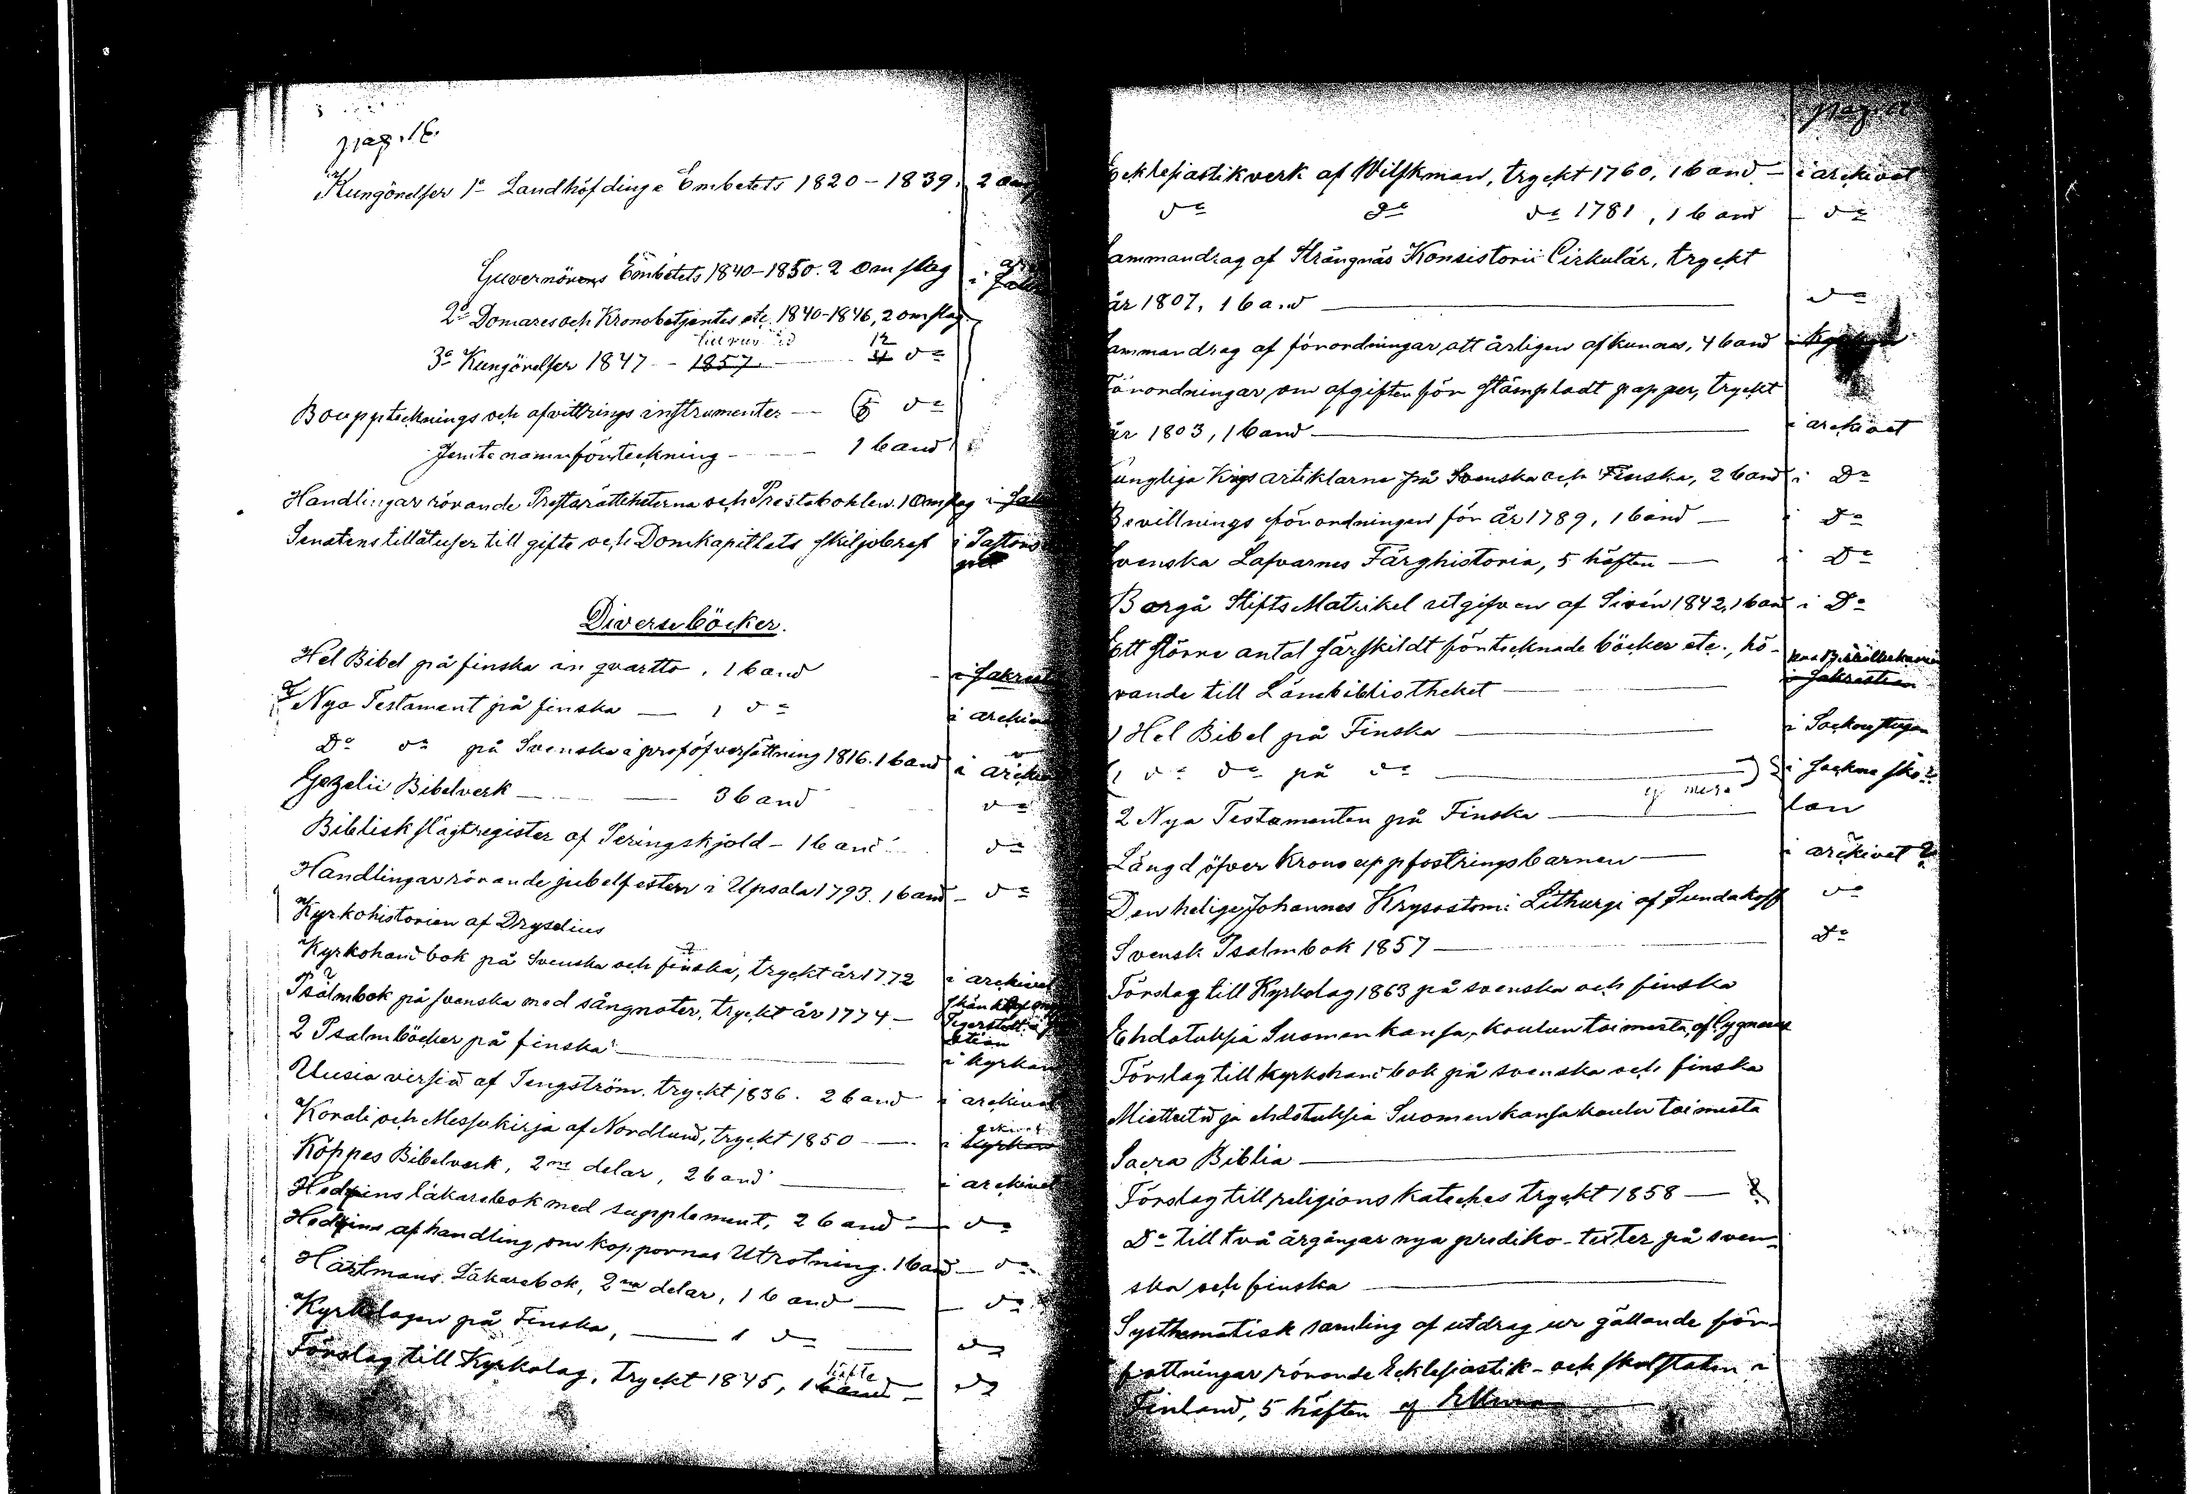 pag. 16.
Kungörelser 1º Landhöfdinge Embetets 1820-1839. 2 oms
Guvernörens Embetets 1840-1850. 2 Omslag i
2º Domares och Kronobetjentes etc. 1840-1846, 2 omslag
3º Kungörelser 1847 - 1857 12 4 dº
Bouppteknings och afvittrings instrumenter — dº
Jemte namnförteckning — 1 band
Handlingar rörande Prestarättigheterna och Prestabohlen. 1 Omslag i Sak
Senatens tillåtelser till gifte och Domkapitlets skiljobref i Pastors
Diverse böcker.
Hel Bibel på finska in quartto, 1 band i Sakrist
Nya Testament på finska — 1 dº i arkiv
Dº dº på Svenska i proföfversättning 1816. 1 band i arkiv
Gezelii Bibelverk — 3 band dº
Biblisk slägtregister af Peringskjold - 1 band dº
Handlingar rörande jubelfesten i Upsala 1793. 1 band - dº
Kyrkohistorien af Dryselius
Kyrkohandbok på Svenska och finska, tryckt år 1772 i arkivet
Psalmbok på svenska med sångnoter, tryckt år 1774 -
2 Psalmböcker på finska — i kyrkan
Uusia virsiä af Tengström. tryckt 1836. 2 band i arkivet
Korali och Messukirja af Nordlund, tryckt 1850 — i kyrkan
Köppes Bibelverk, 2ne delar, 2 band — i arkivet
Hedins läkarebok med supplement, 2 band — dº
Hedins afhandling om koppornas Utrotning. 1 band — dº
Hartmans Läkarebok, 2ne delar, 1 band — dº
Kyrkolagen på Finska, — 1 dº — dº
Förslag till Kyrkolag, tryckt 1845, 1 band häfte — dº
pag.
Ecklesiastikverk af Wilskman, tryckt 1760, 1 band — i arkivet
dº dº dº 1781, 1 band — dº
ammandrag af Strängnäs Konsistorii Cirkulär, tryckt
år 1807, 1 band — dº
ammandrag af förordningar, att årligen afkunnas, 4 band
Förordningar, om afgiften för stämpladt papper, tryckt
år 1803, 1 band — i arkivet
ungliga Krigsartiklarne på Svenska och Finska, 2 band i Dº
Bevillnings förordningen för år 1789, 1 band — i Dº
venska Lafvarnes Färghistoria, 5 häften — i Dº
Borgå Stifts Matrikel utgifven af Sirén 1842, 1 band i Dº
Ett större antal särskildt förtecknade böcker etc., hö-
rande till Lånebibliotheket — i Sakristian
1 Hel Bibel på Finska — i Sockenstugan
(1 dº dº på dº —) i Sockne sko-
2 Nya Testamenten på Finska — ej mera lan
Längd öfver Krono uppfostringsbarnen — i arkivet
Den helige Johannes Krysostomi Lithurgi af Sundakoff dº
Svensk Psalmbok 1857 — Dº
Förslag till Kyrkolag 1863 på svenska och finska
Ehdotuksia Suomen kansa-koulun toimesta, af Cygnaeus
Förslag till kyrkohandbok på svenska och finska
Mietteitä ja ehdotuksia Suomen kansakoulu toimesta
Sacra Biblia —
Förslag till religions kateches tryckt 1858 —
Dº till två årgångar nya prediko-texter på sven-
ska och finska —
Systhematisk samling af utdrag ur gällande för-
fattningar rörande Ecklesiastik- och skolstaten i
Finland, 5 häften af